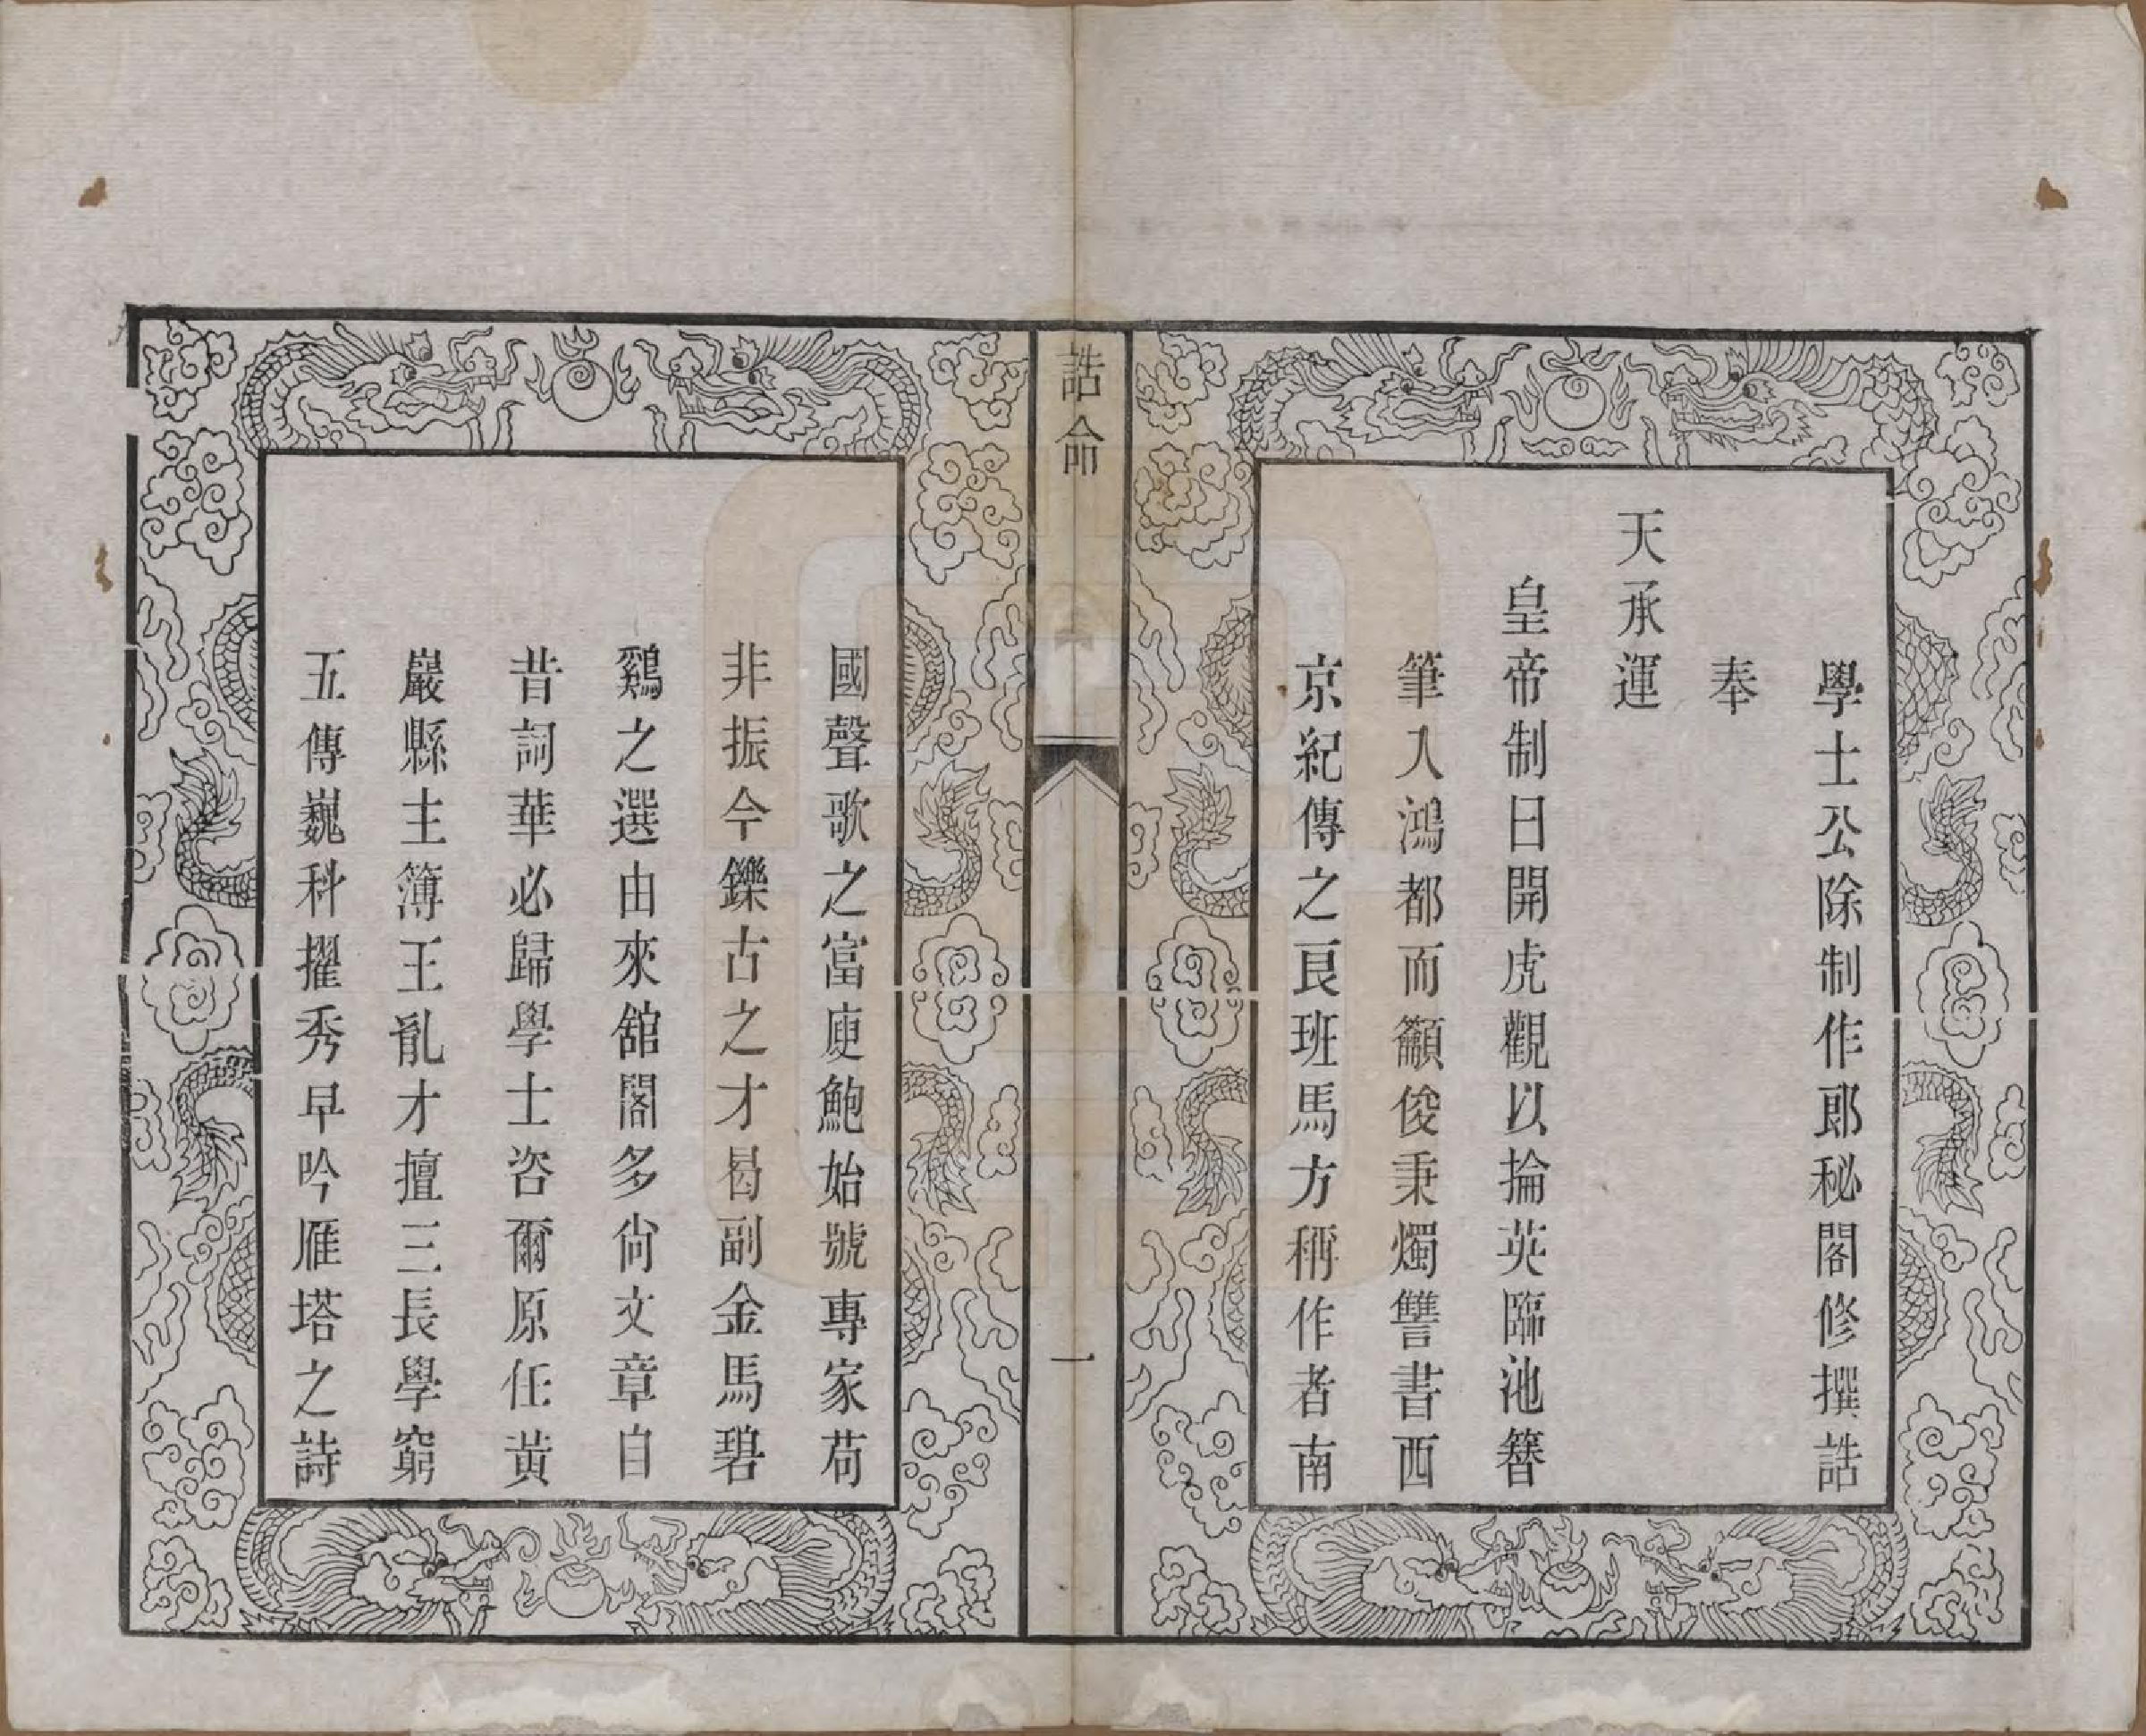 學士公除制作郎秘閣修撰誥
奉
天承運
皇帝制曰開虎觀以掄英臨池簪
筆入鴻都而籲俊秉燭讐書西
京紀傳之良班馬方稱作者南
誥命
一
國聲歌之富庾鮑始號專家苟
非振今鑠古之才曷副金馬碧
鷄之選由來舘閣多尙文章自
昔詞華必歸學士咨爾原任黃
巖縣主簿王胤才擅三長學窮
五傳巍科擢秀早吟雁塔之詩